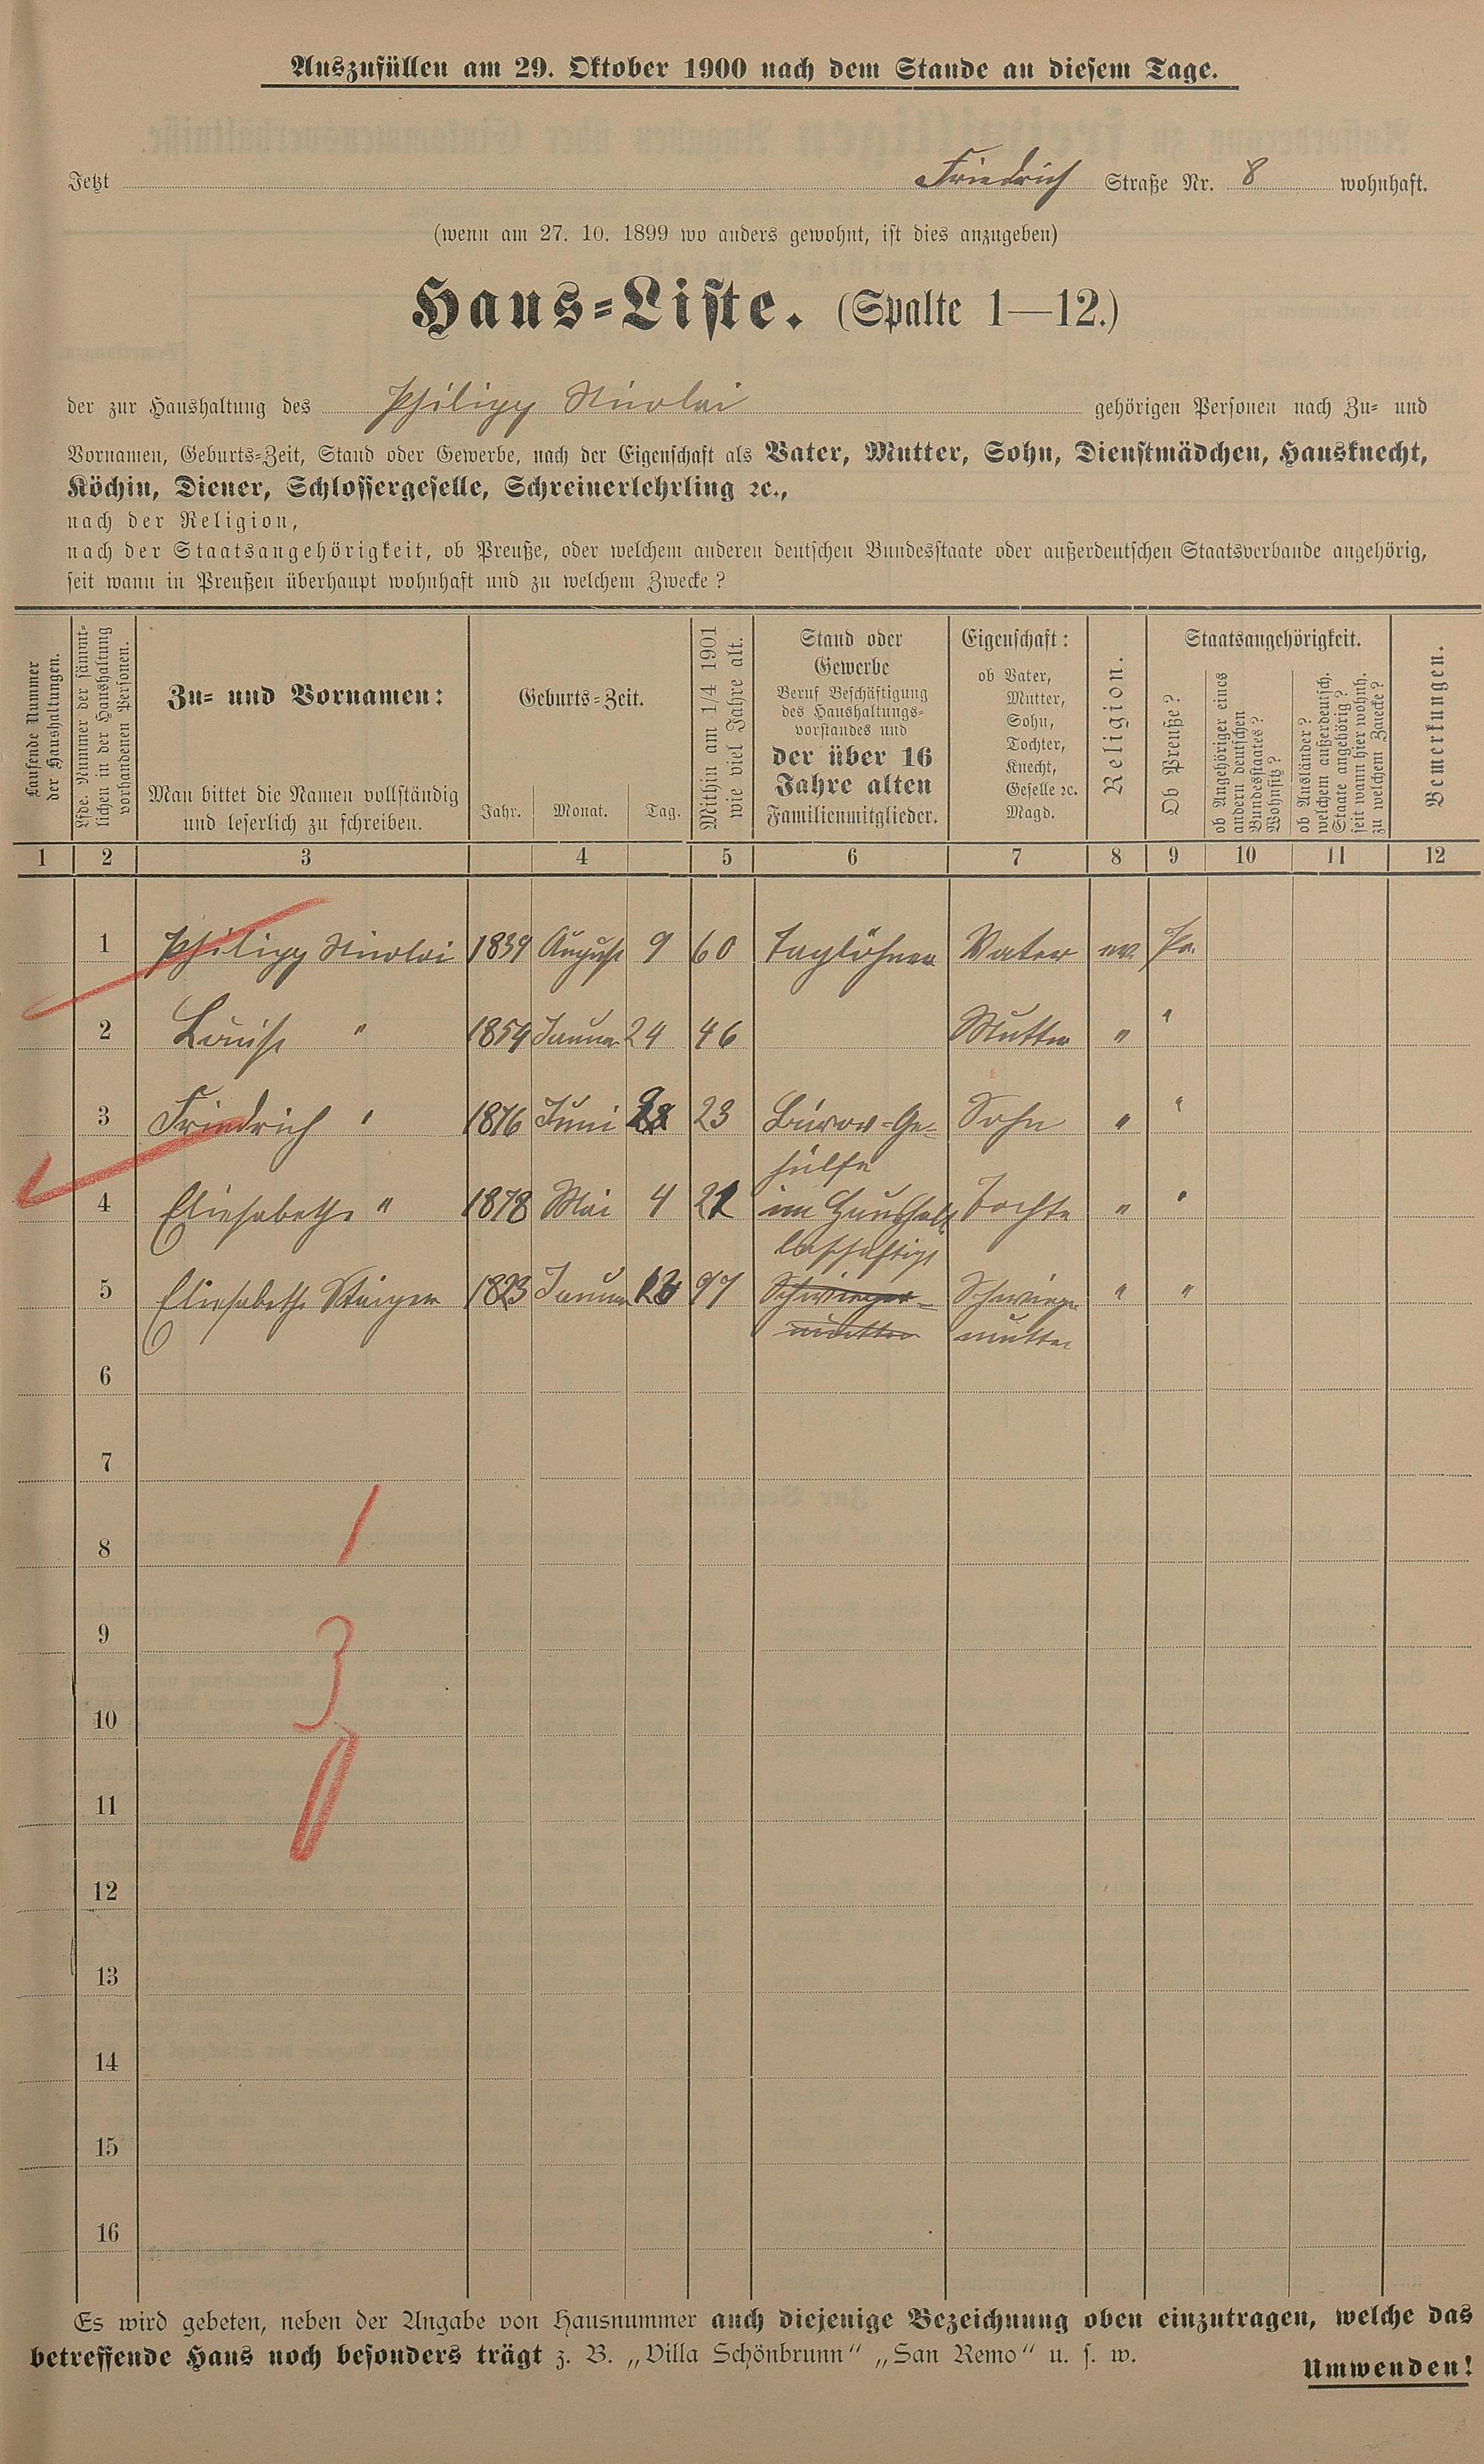 Auszufüllen am 29. Oktober 1900 nach dem Stande an diesem Tage.
Jetzt Friedrich Straße Nr. 8 wohnhaft.
(wenn am 27. 10. 1899 wo anders gewohnt, ist dies anzugeben)
Haus-Liste. (Spalte 1—12.)
der zur Haushaltung des Philipp Nicolai gehörigen Personen nach Zu- und
Vornamen, Geburts-Zeit, Stand oder Gewerbe, nach der Eigenschaft als Vater, Mutter, Sohn, Dienstmädchen, Hausknecht,
Köchin, Diener, Schlossergeselle, Schreinerlehrling ꝛc.,
nach der Religion,
nach der Staatsangehörigkeit, ob Preuße, oder welchem anderen deutschen Bundesstaate oder außerdeutschen Staatsverbande angehörig,
seit wann in Preußen überhaupt wohnhaft und zu welchem Zwecke?
Laufende Nummer
der Haushaltungen.
Lfde. Nummer der sämmt-
lichen in der Haushaltung
vorhandenen Personen.
Zu- und Vornamen:
Man bittet die Namen vollständig
und leserlich zu schreiben.
Geburts-Zeit.
Jahr. Monat. Tag.
Mithin am 1/4 1901
wie viel Jahre alt.
Stand oder
Gewerbe
Beruf Beschäftigung
des Haushaltungs-
vorstandes und
der über 16
Jahre alten
Familienmitglieder.
Eigenschaft:
ob Vater,
Mutter,
Sohn,
Tochter,
Knecht,
Geselle ꝛc.
Magd.
Religion.
Staatsangehörigkeit.
Ob Preuße?
ob Angehöriger eines
andern deutschen
Bundesstaates?
Wohnsitz?
ob Ausländer?
welchem außerdeutsch.
Staate angehörig?
seit wann hier wohnh.
zu welchem Zwecke?
Bemerkungen.
1 2 3 4 5 6 7 8 9 10 11 12
1 Philipp Nicolai 1839 August 9 60 Taglöhner Vater ev. Pr.
2 Louise " 1854 Januar 24 46 Mutter " "
3 Friedrich " 1876 Juni 23 Bürow-Ge- Sohn " "
hülfe
4 Eliesabethe " 1878 Mai 4 im Haushalt Tochter " "
beschäftigt
5 Eliesabethe 1823 Januar 77 Schwieger- Schwieger " "
mutter mutter
6
7
1
8
9
3
10
11
12
13
14
15
16
Es wird gebeten, neben der Angabe von Hausnummer auch diejenige Bezeichnung oben einzutragen, welche das
betreffende Haus noch besonders trägt z. B. „Villa Schönbrunn“ „San Remo“ u. s. w.
Umwenden!